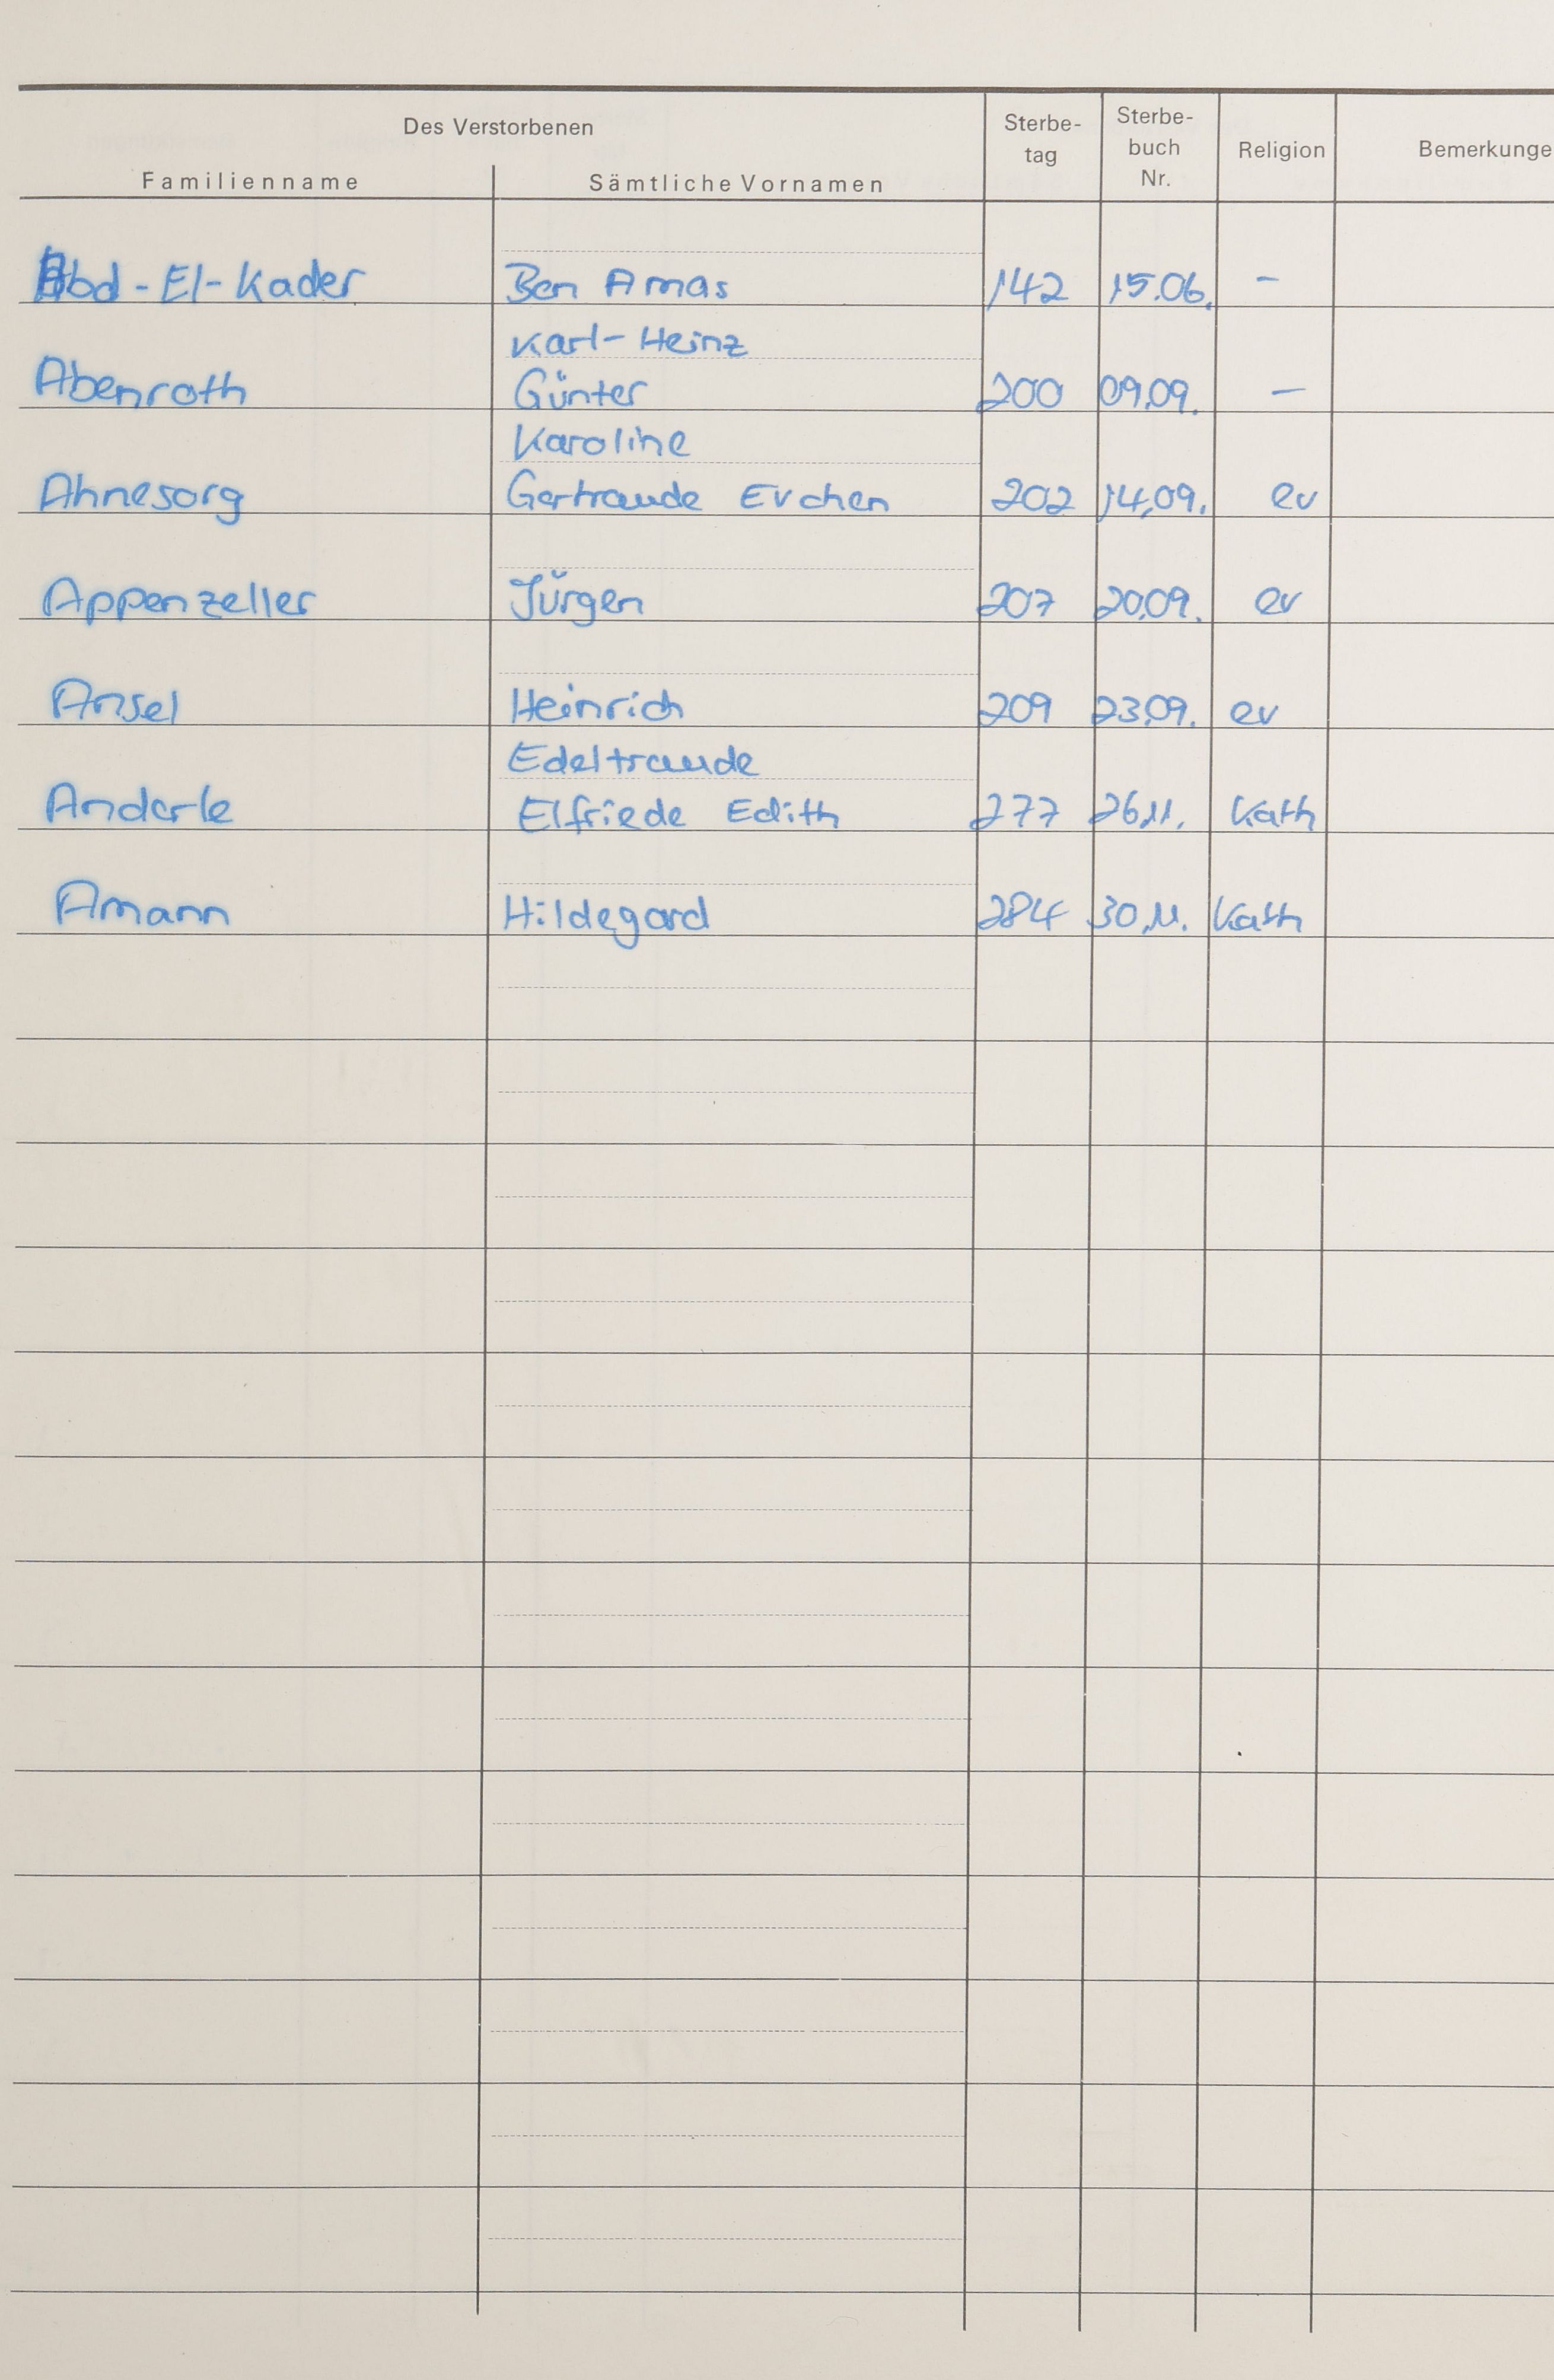 Des Verstorbenen
Familienname Sämtliche Vornamen Sterbe-tag Sterbe-buch Nr. Religion Bemerkunge
Abd-El-Kader Ben Amas 142 15.06. -
Karl-Heinz
Abenroth Günter 200 09.09. -
Karoline
Ahnesorg Gertraude Evchen 202 14.09. ev
Appenzeller Jürgen 207 20.09. ev
Ansel Heinrich 209 23.09. ev
Edeltraude
Anderle Elfriede Edith 277 26.11. Kath
Amann Hildegard 284 30.11. Kath